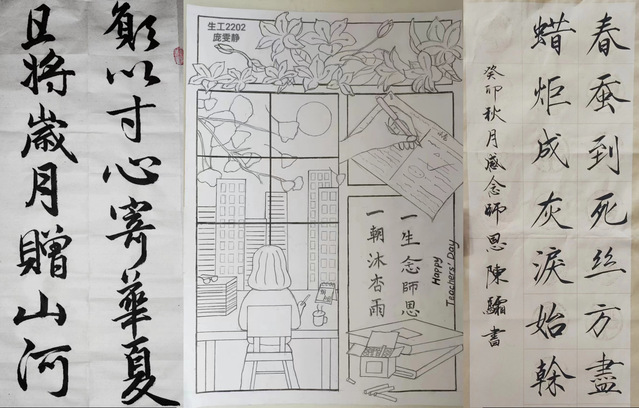 願以寸心寄華夏
且將歲月贈山河
生工2202
庞雯静
一生念師恩
一朝沐杏雨
Happy
Teachers' Day
春蚕到死丝方盡
蜡炬成灰淚始幹
癸卯秋月感念師恩陳騙書